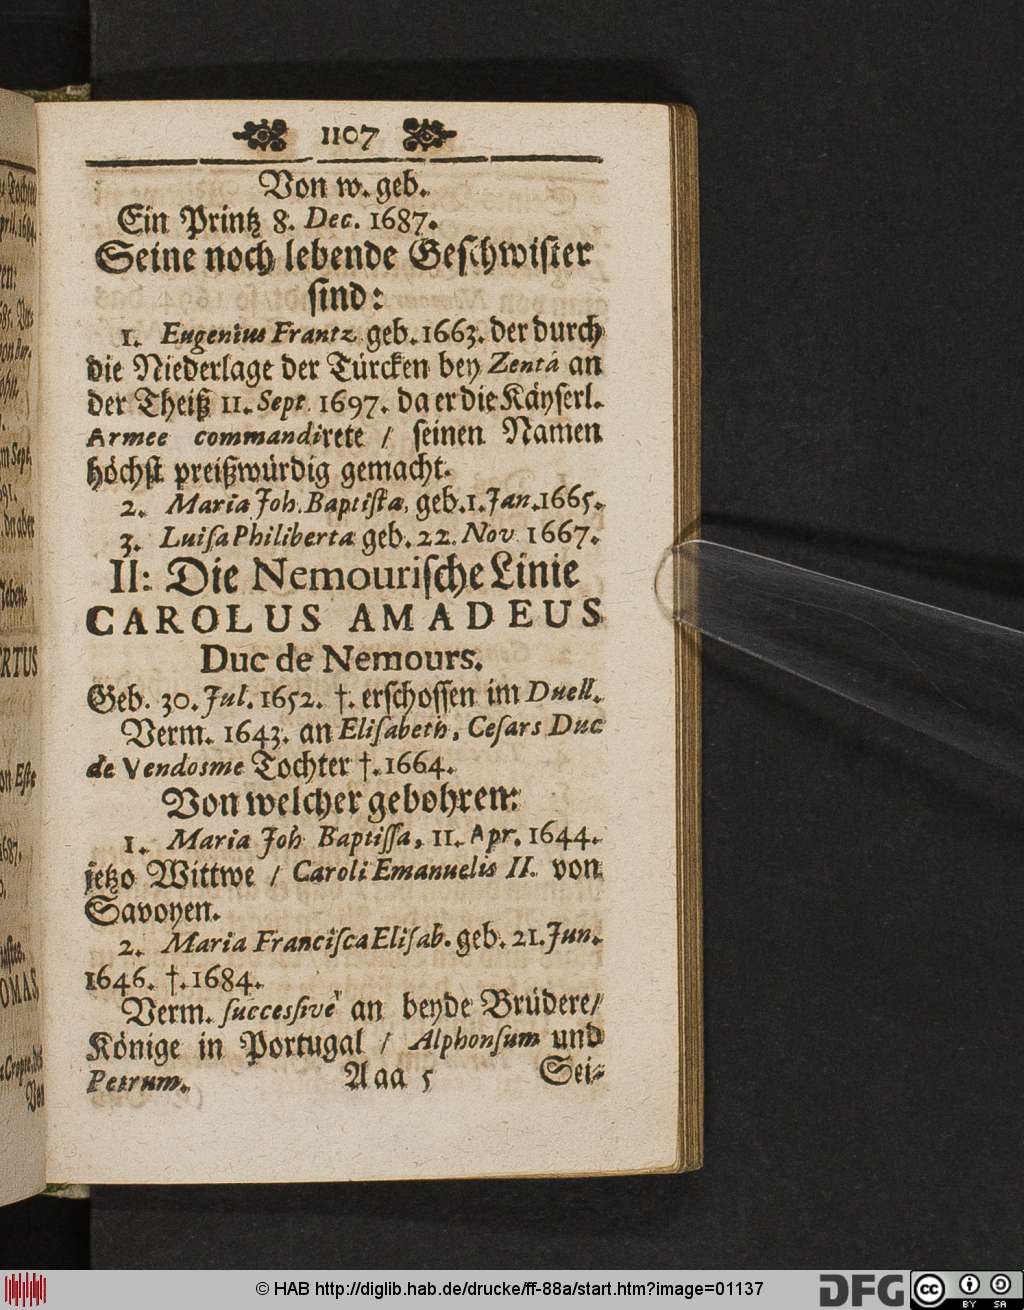 1107
Von w. geb.
Ein Printz 8. Dec. 1687.
Seine noch lebende Geschwister
sind:
1. Eugenius Frantz geb. 1663. der durch
die Niederlage der Türcken bey Zentá an
der Theiß 11. Sept. 1697. da er die Käyserl.
Armee commandirete / seinen Namen
höchst preißwürdig gemacht.
2. Maria Joh. Baptista, geb. 1. Jan. 1665.
3. Luisa Philiberta geb. 22. Nov 1667.
II: Die Nemourische Linie
CAROLUS AMADEUS
Duc de Nemours.
Geb. 30. Jul. 1652. †. erschossen im Duell.
Verm. 1643. an Elisabeth, Cesars Duc
de Vendosme Tochter †. 1664.
Von welcher gebohren:
1. Maria Joh Baptissa, 11. Apr. 1644.
jetzo Wittwe / Caroli Emanuelis II. von
Savoyen.
2. Maria Francisca Elisab. geb. 21. Jun.
1646. †. 1684.
Verm. successivè an beyde Brüdere/
Könige in Portugal / Alphonsum und
Petrum. Aaa 5 Sei-
© HAB http://diglib.hab.de/drucke/ff-88a/start.htm?image=01137
DFG cc BY SA